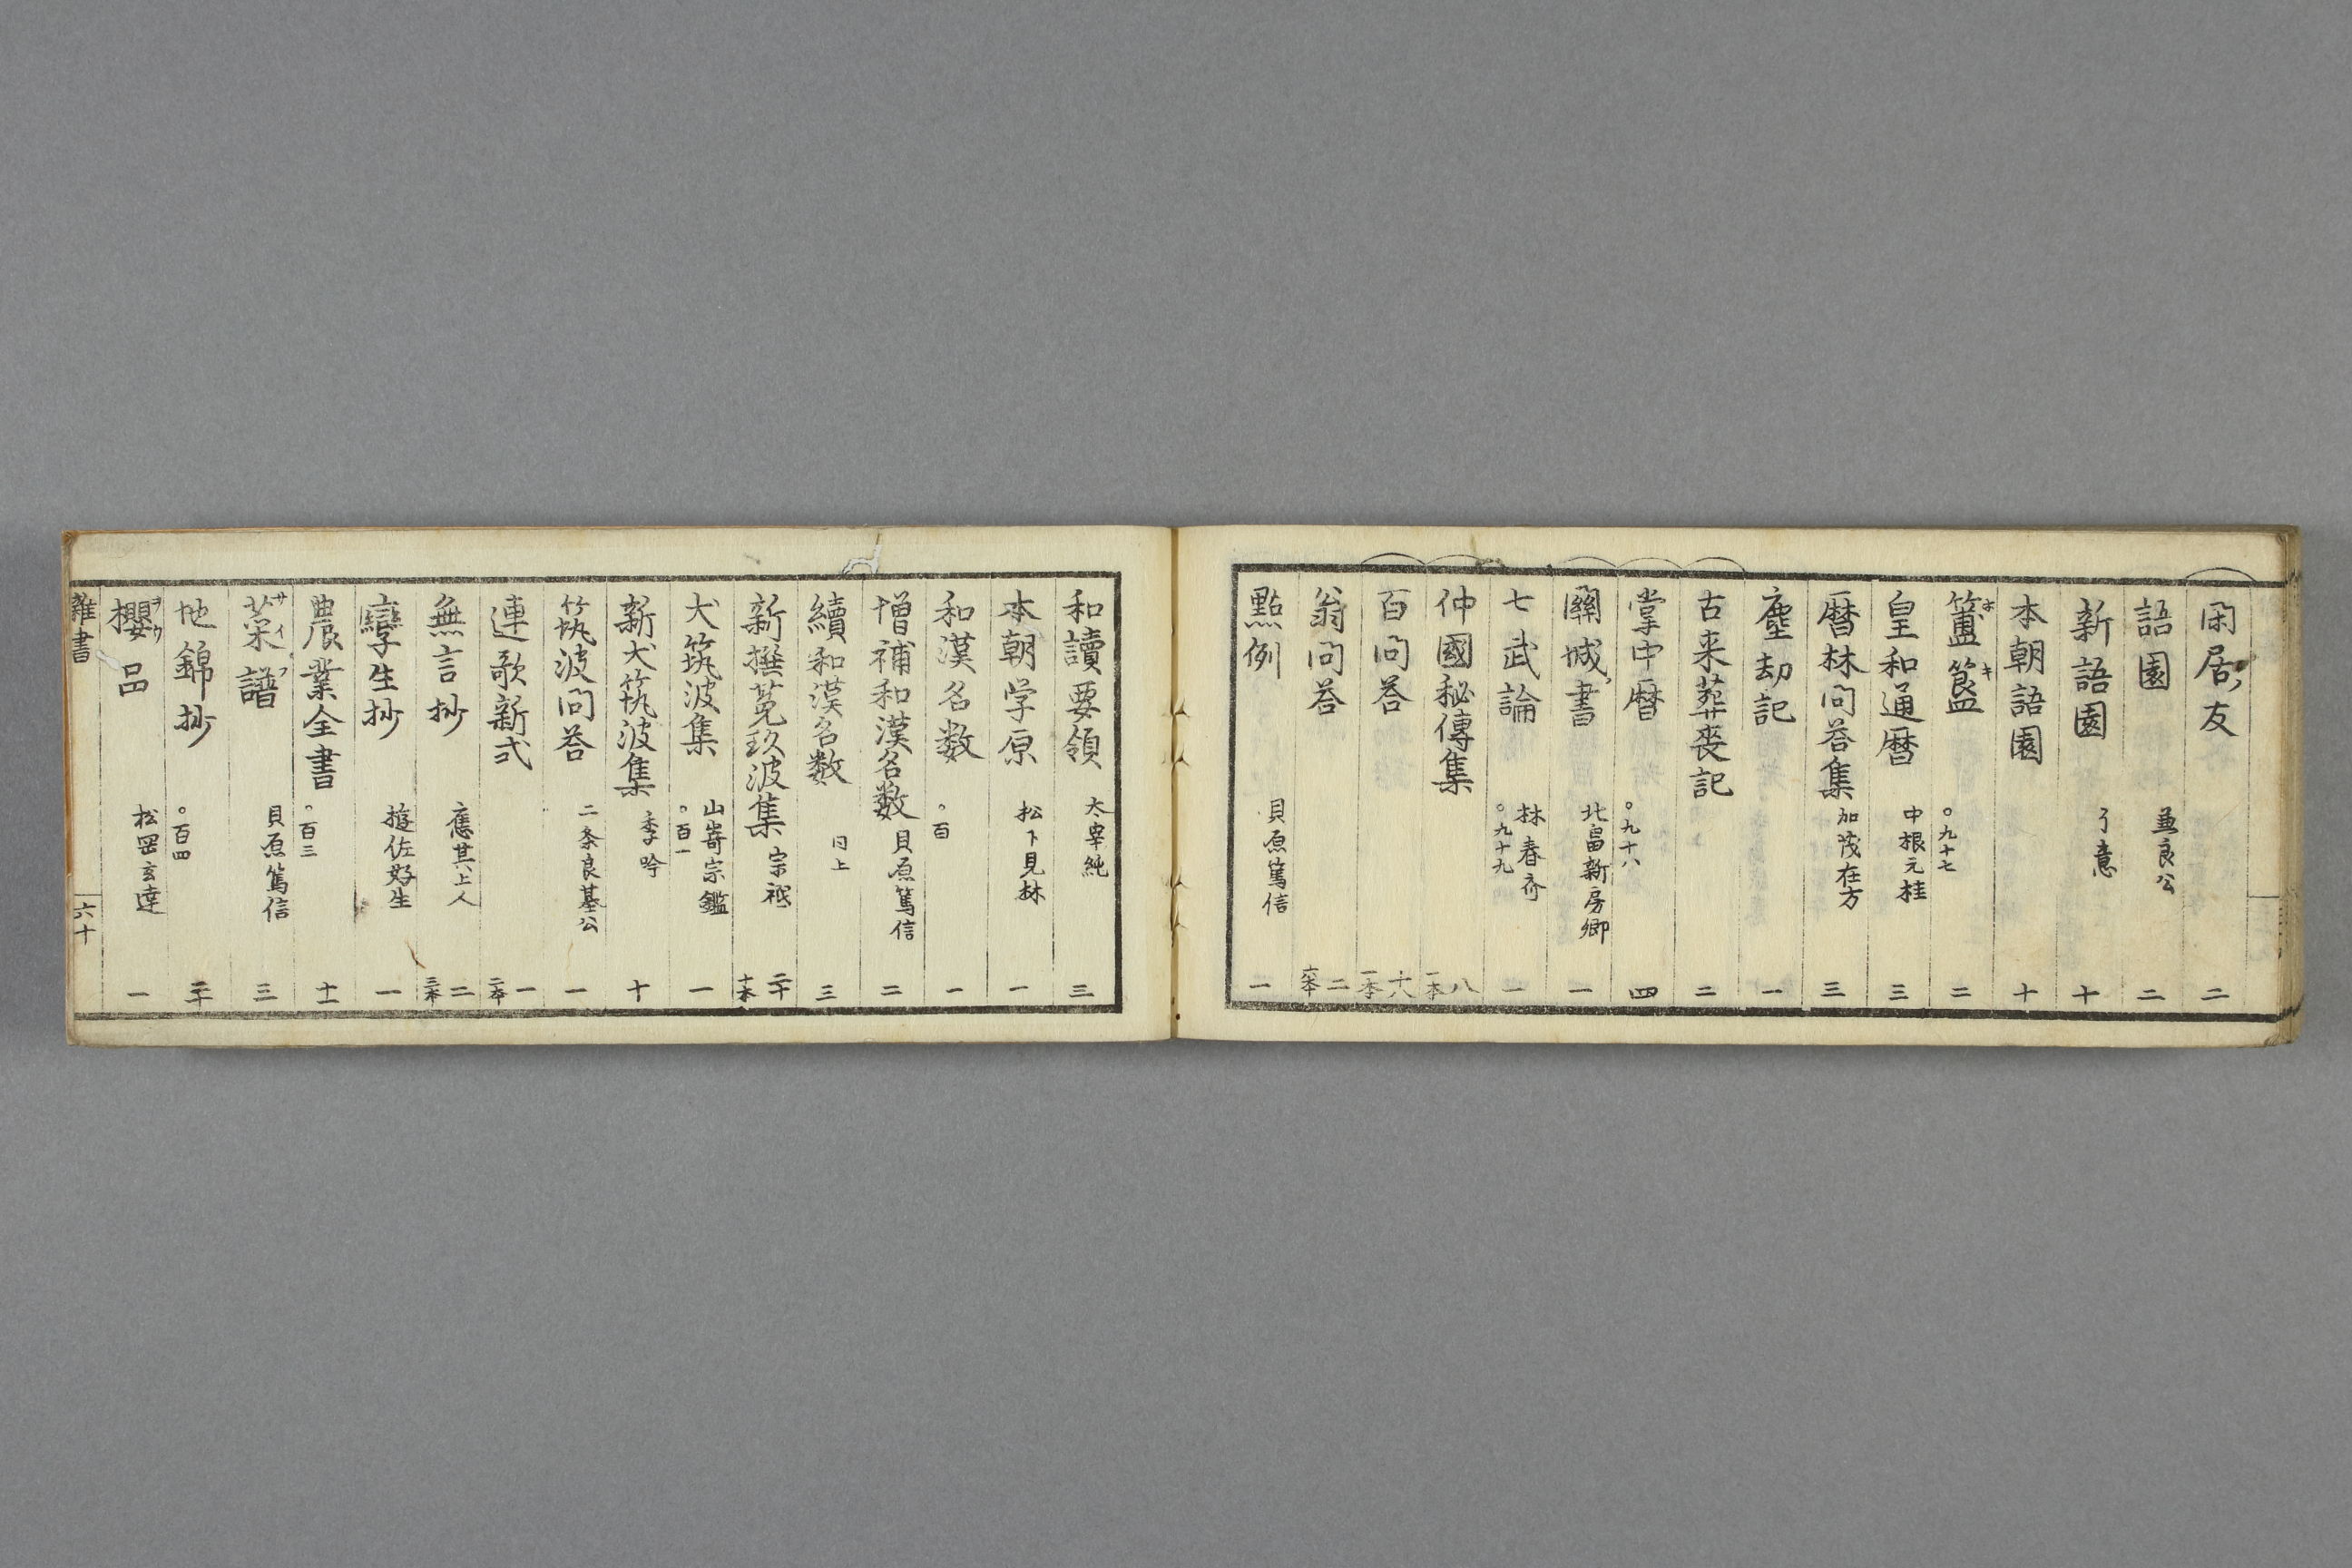 閑居ノ友 二
語園 兼良公 二
新語園 了意 十
本朝語園 十
簠簋 ホキ 〇九十七 二
皇和通暦 中根元桂 三
暦林問答集 加茂在方 三
塵劫記 一
古来葬喪記 二
掌中暦 〇九十八 四
關城書 北畠新房卿 一
七武論 林春斎 〇九十九 一
仲國秘傳集 八 一本
百問答 十六 一本
翁問答 二
點例 貝原篤信 二
和讀要領 太宰純 三
本朝学原 松下見林 一
和漢名数 〇百 一
増補和漢名数 貝原篤信 二
續和漢名数 同上 三
新撰菟玖波集 宗祇 二十 十本
犬筑波集 山嵜宗鑑 〇百一 一
新犬筑波集 季吟 十
筑波問答 二条良基公 一
連歌新式 一 二本
無言抄 應其上人 二 三本
孿生抄 遊佐好生 一
農業全書 〇百三 十一
菜譜 サイフ 貝原篤信 三
地錦抄 〇百四 二十
櫻品 ヲウ 松岡玄達 一
雜書 六十